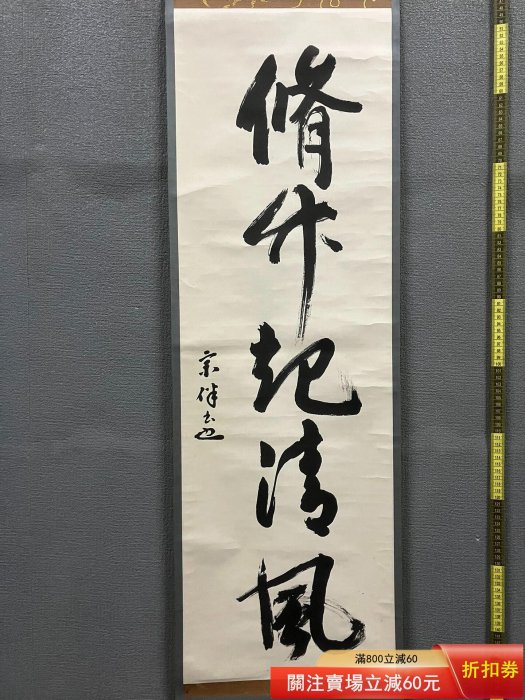 脩竹起清風
滿800立減60
關注賣場立減60元
折扣券